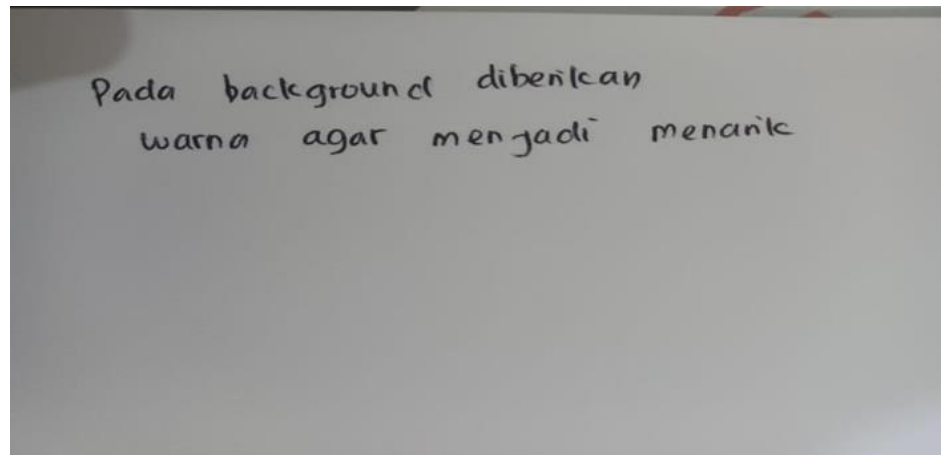 Pada background diberikan
warna agar menjadi menarik